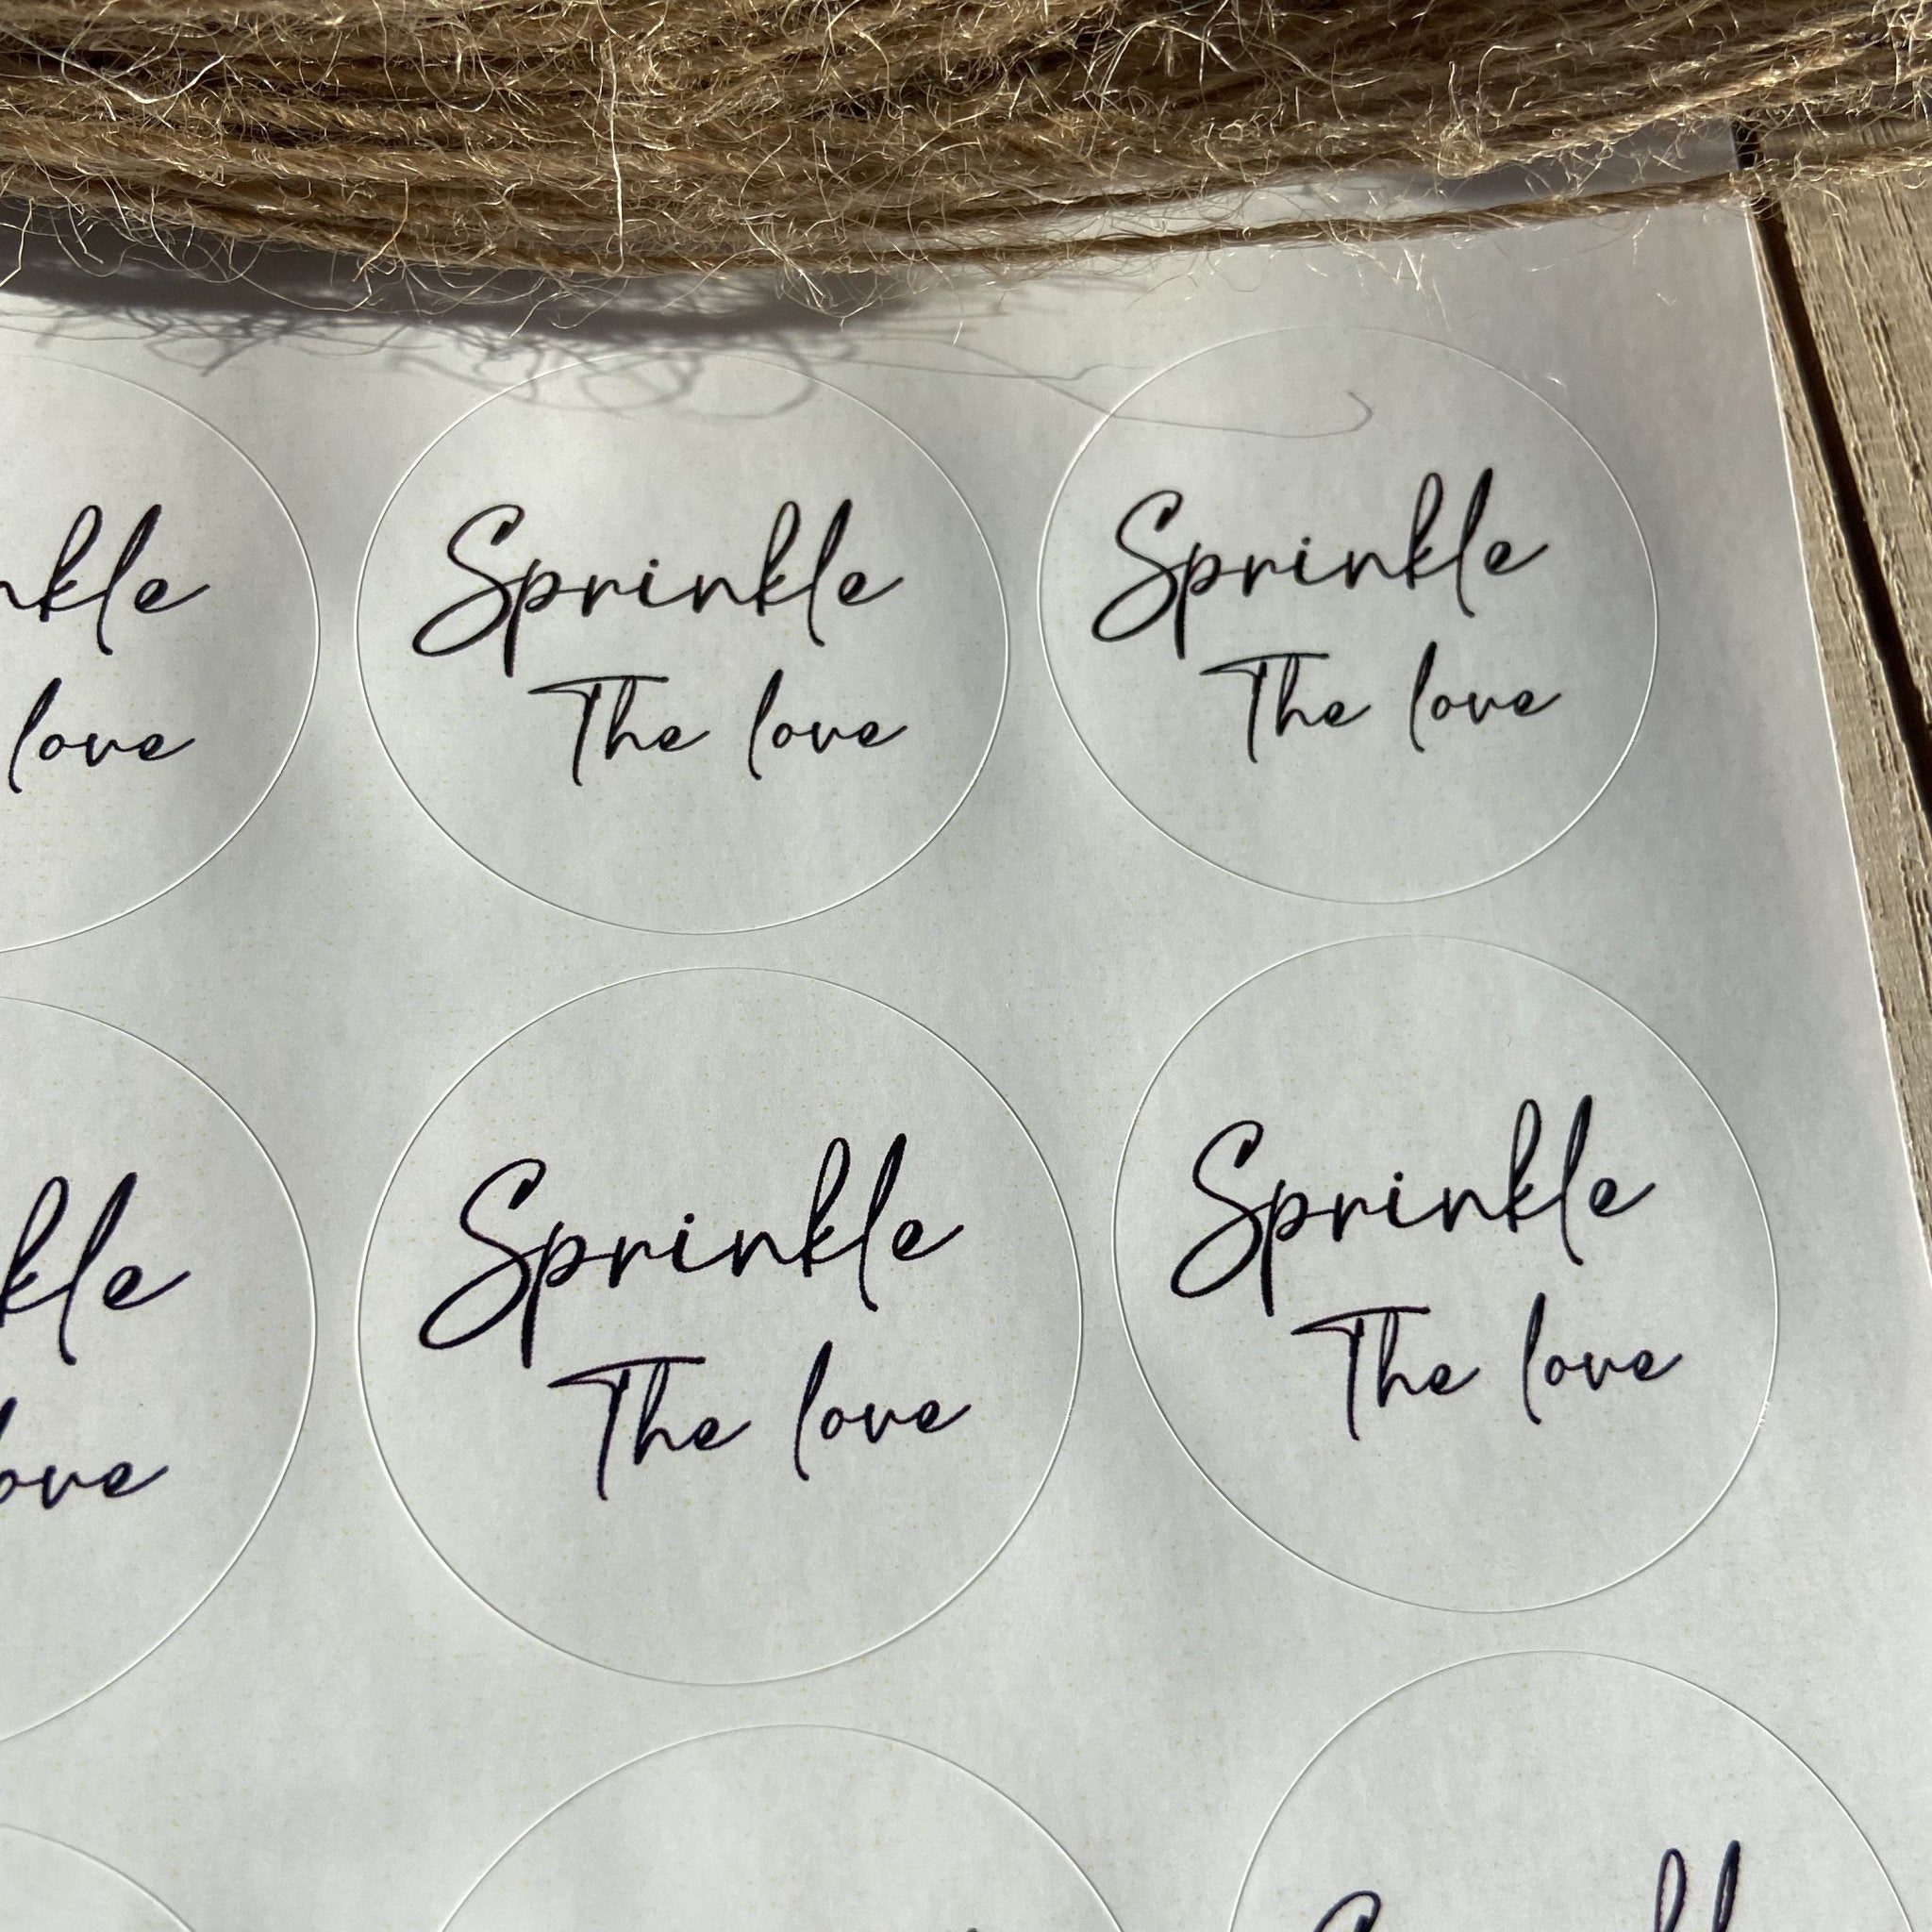 Sprinkle
The love
Sprinkle
The love
love
Sprinkle
The love
Sprinkle
The love